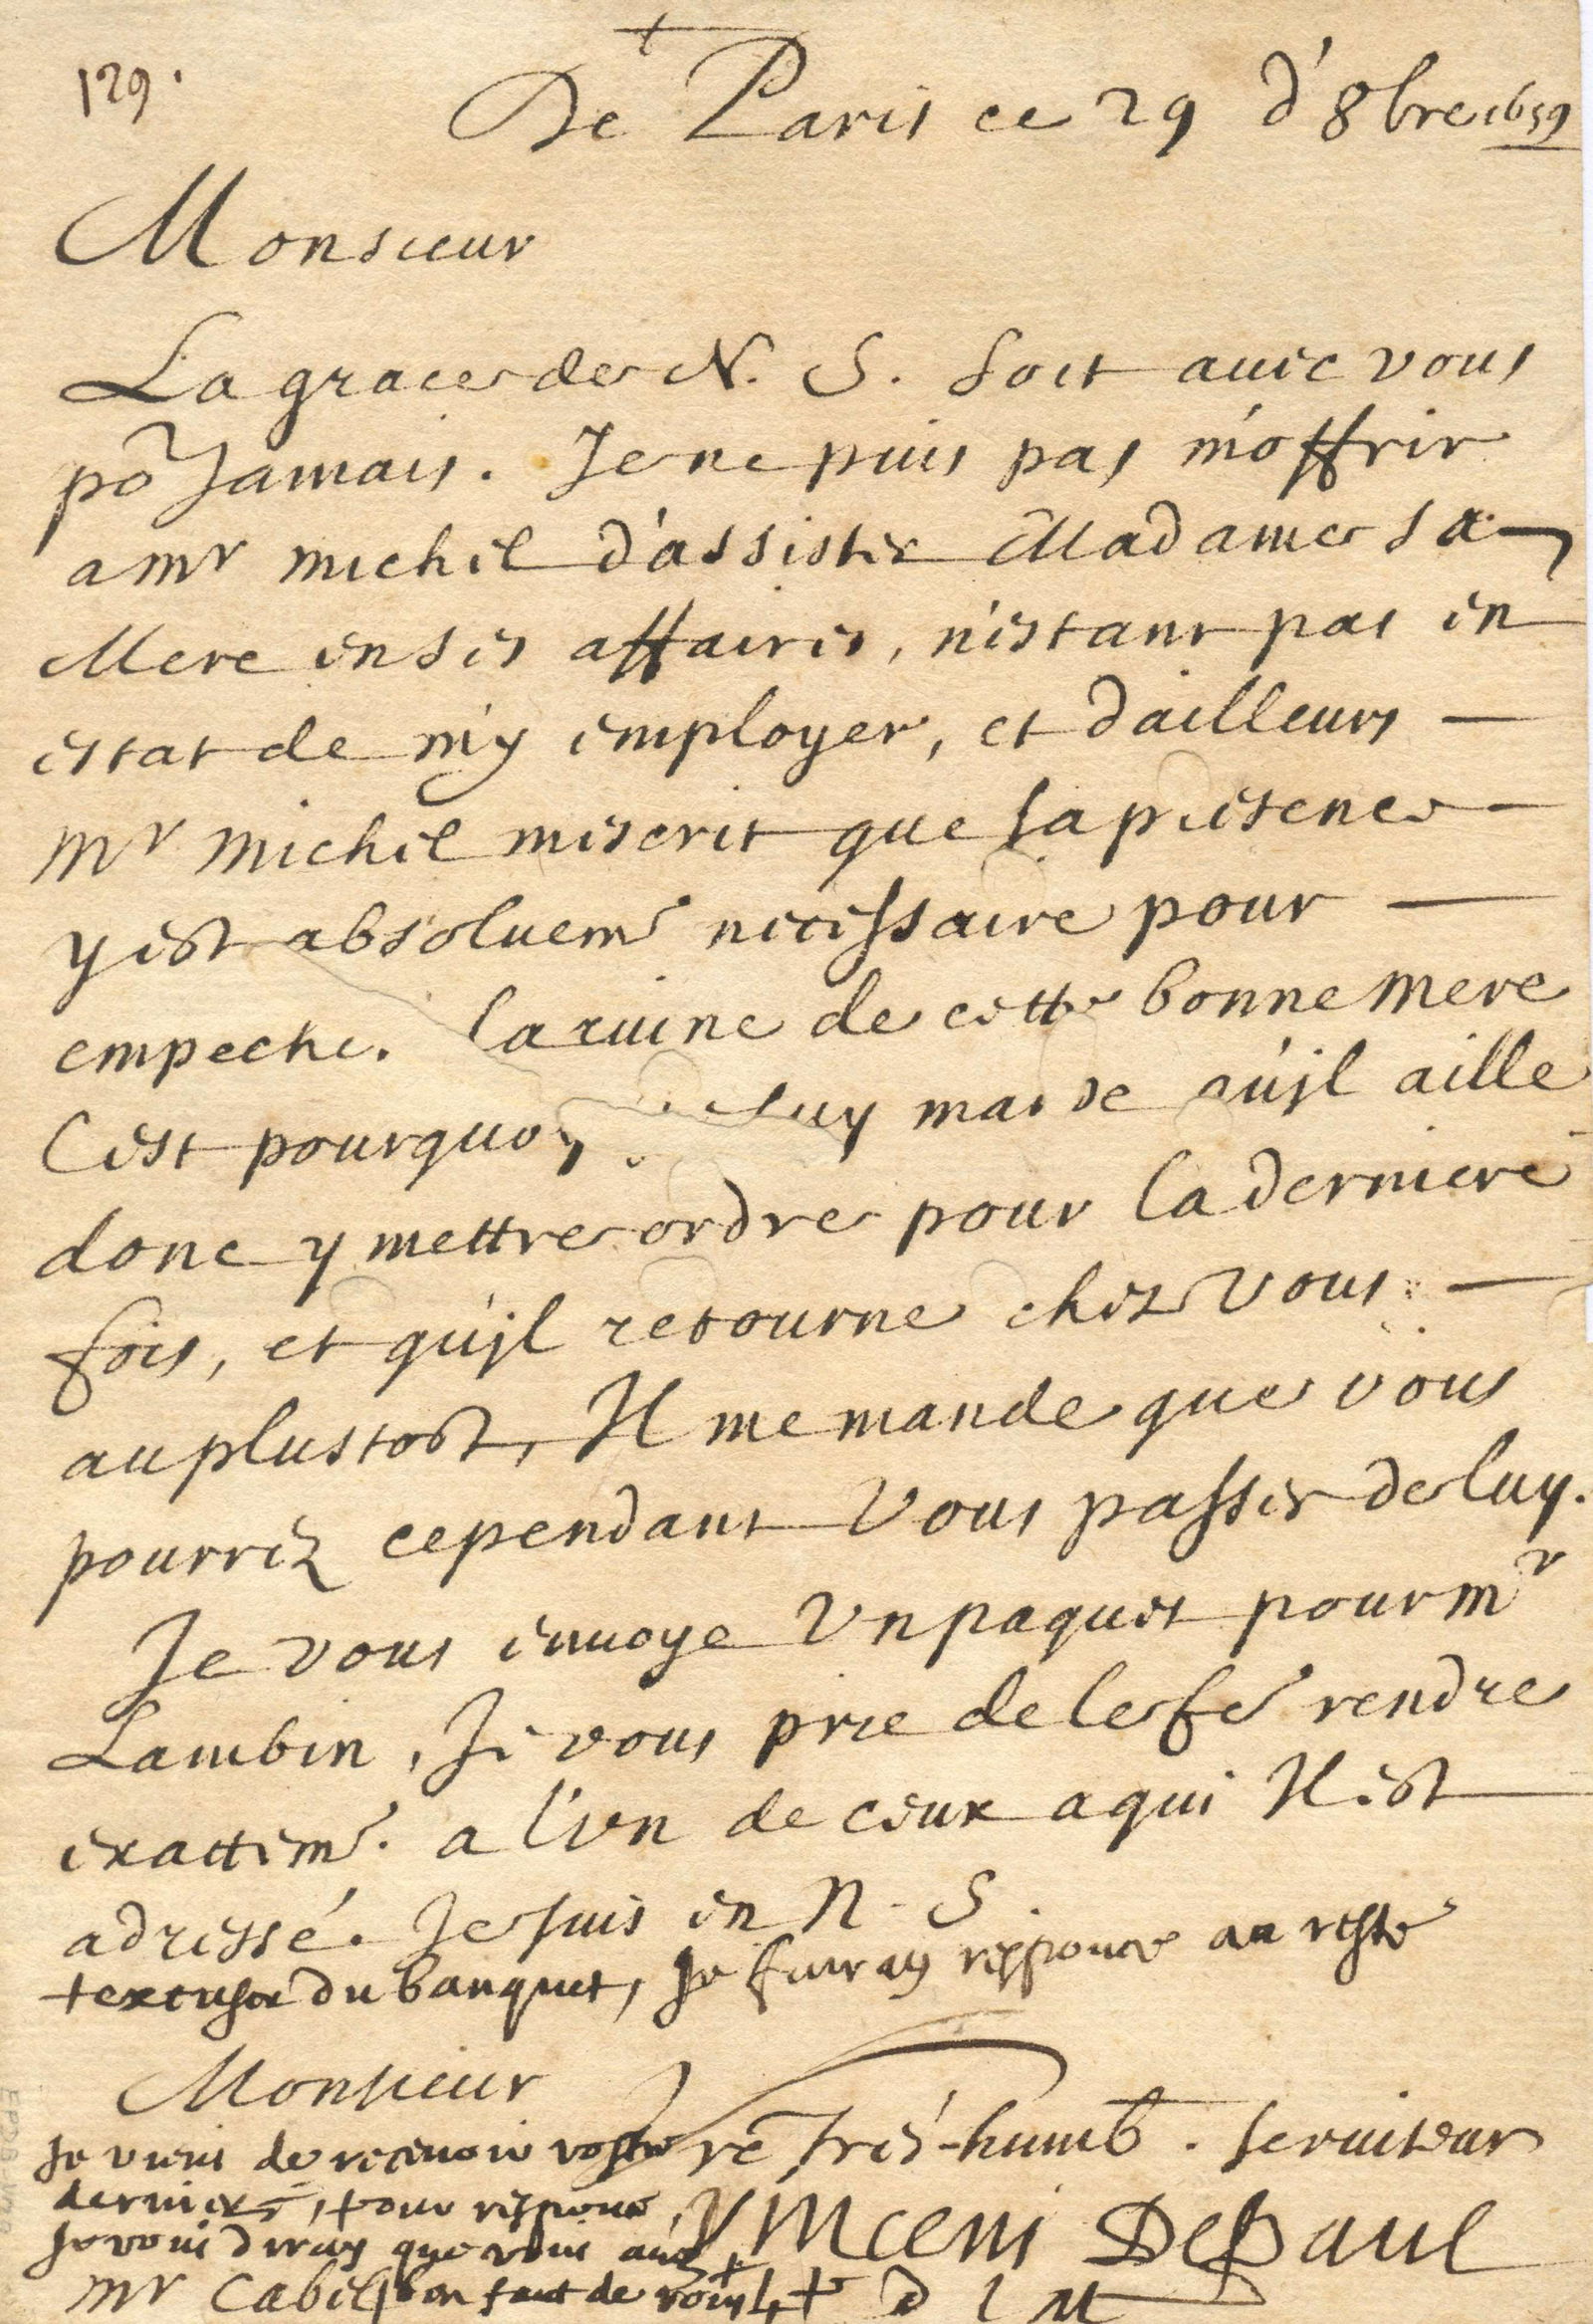 129.
De Paris ce 29 d'8bre 1659
Monsieur
La grace de N. S. soit auec vous
po^r Jamais. Je ne puis pas m'offrir
a m^r michel d'assister Madame sa
Mere en ses affaires, n'estant pas en
estat de m'y employer, et d'ailleurs
m^r michel m'escrit que sa presence
y est absoluem^t necessaire pour
empeche. la ruine de cette bonne mere
C'est pourquoy luy mande qu'jl aille
donc y mettre ordre pour la derniere
fois, et qu'jl retourne chez vous
au plustost, Il me mande que vous
pourrez cependant vous passer de luy.
Je vous enuoye vn paquet pour m^r
Lambin, Je vous prie de le fe^r rendre
exactem^t. a l'vn de ceux a qui Il est
adressé. Je suis en N. S.
du banquet, Je feray responce au reste
Monsieur
re tres-humb. seruiteur
Je viens de receuoir vostre
derniere, pour response
Je vous diray que vous aués
Vincent Depaul
m^r Cabel